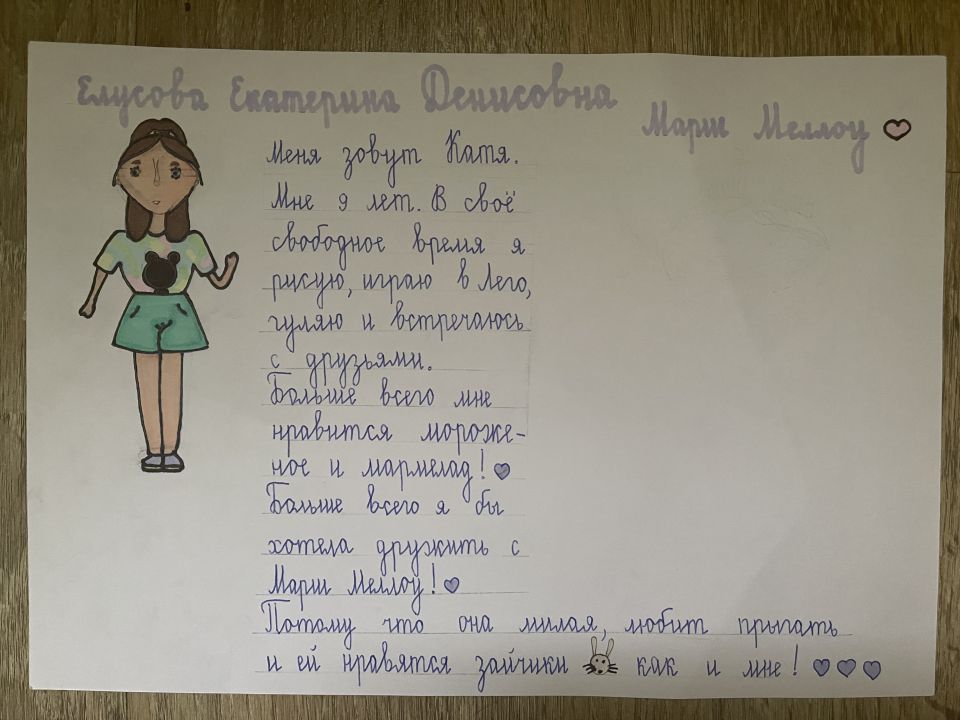 Елусова Екатерина Денисовна
Марши Меллоу
Меня зовут Катя.
Мне 9 лет. В своё
свободное время я
рисую, играю в Лего,
гуляю и встречаюсь
с друзьями.
Больше всего мне
нравится мороже-
ное и мармелад!
Больше всего я бы
хотела дружить с
Марши Меллоу!
Потому что она милая, любит прыгать
и ей нравятся зайчики как и мне!